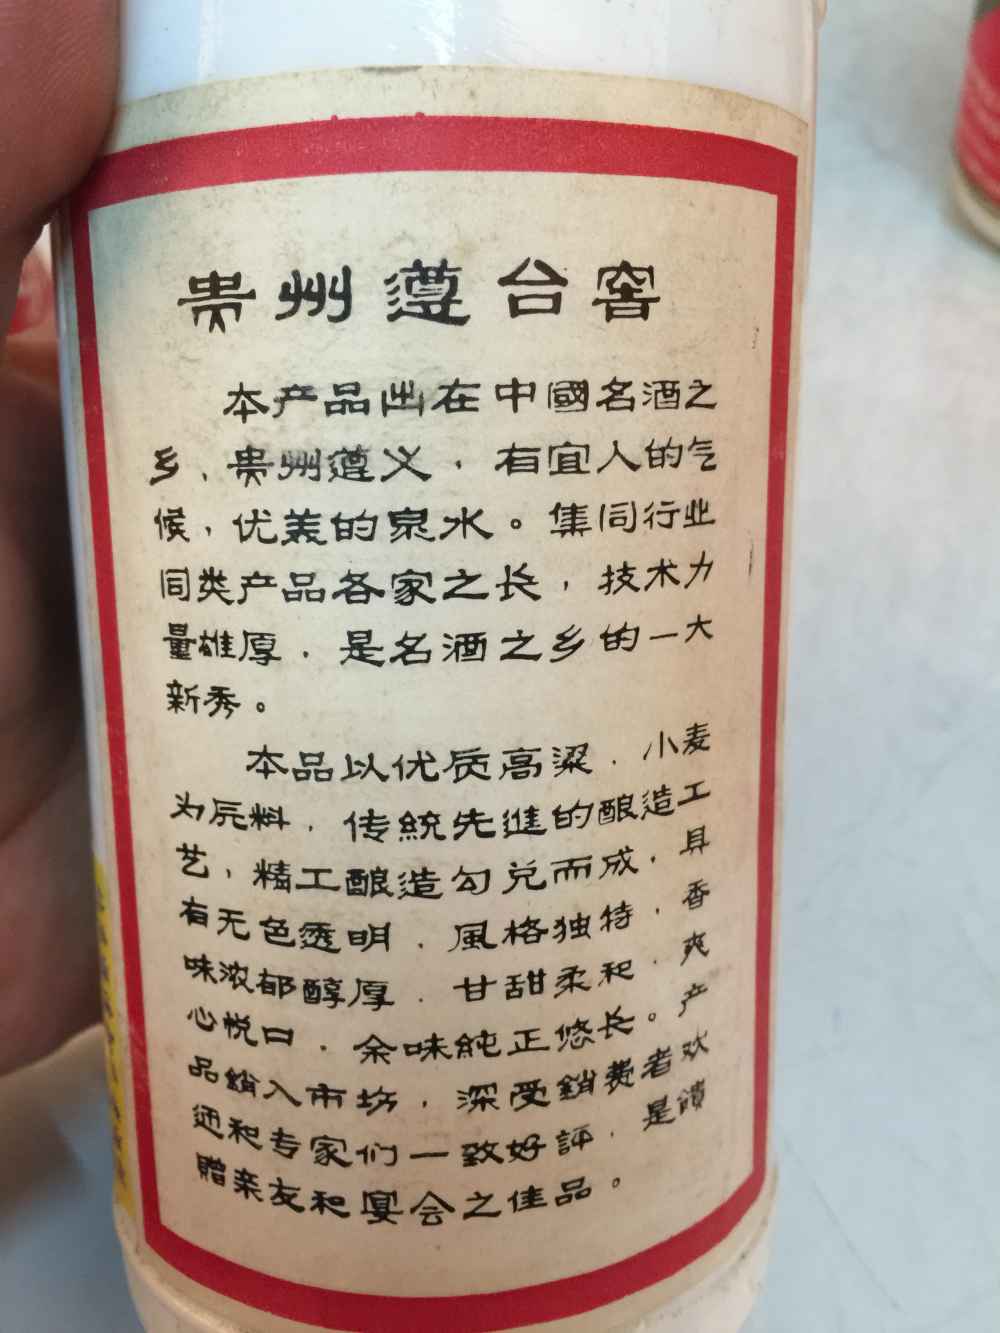 贵州遵台窖
本产品出在中國名酒之
乡,贵州遵义,有宜人的气
候,优美的泉水。集同行业
同类产品各家之长,技术力
量雄厚,是名酒之乡的一大
新秀。
本品以优质高粱,小麦
为原料,传統先進的酿造工
艺,精工酿造勾兑而成,具
有无色透明,風格独特,香
味浓郁醇厚,甘甜柔和,爽
心悦口,余味純正悠长。产
品銷入市场,深受銷费者欢
迎和专家们一致好評,是饋
贈亲友和宴会之佳品。